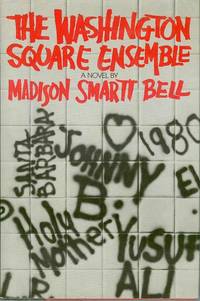 THE WASHINGTON
SQUARE ENSEMBLE
A NOVEL BY
MADISON SMARTT BELL
SANTA
BARBARA
1980
JOHNNY
B.
El
Holy
Mother
YUSUF
ALI
L.R.